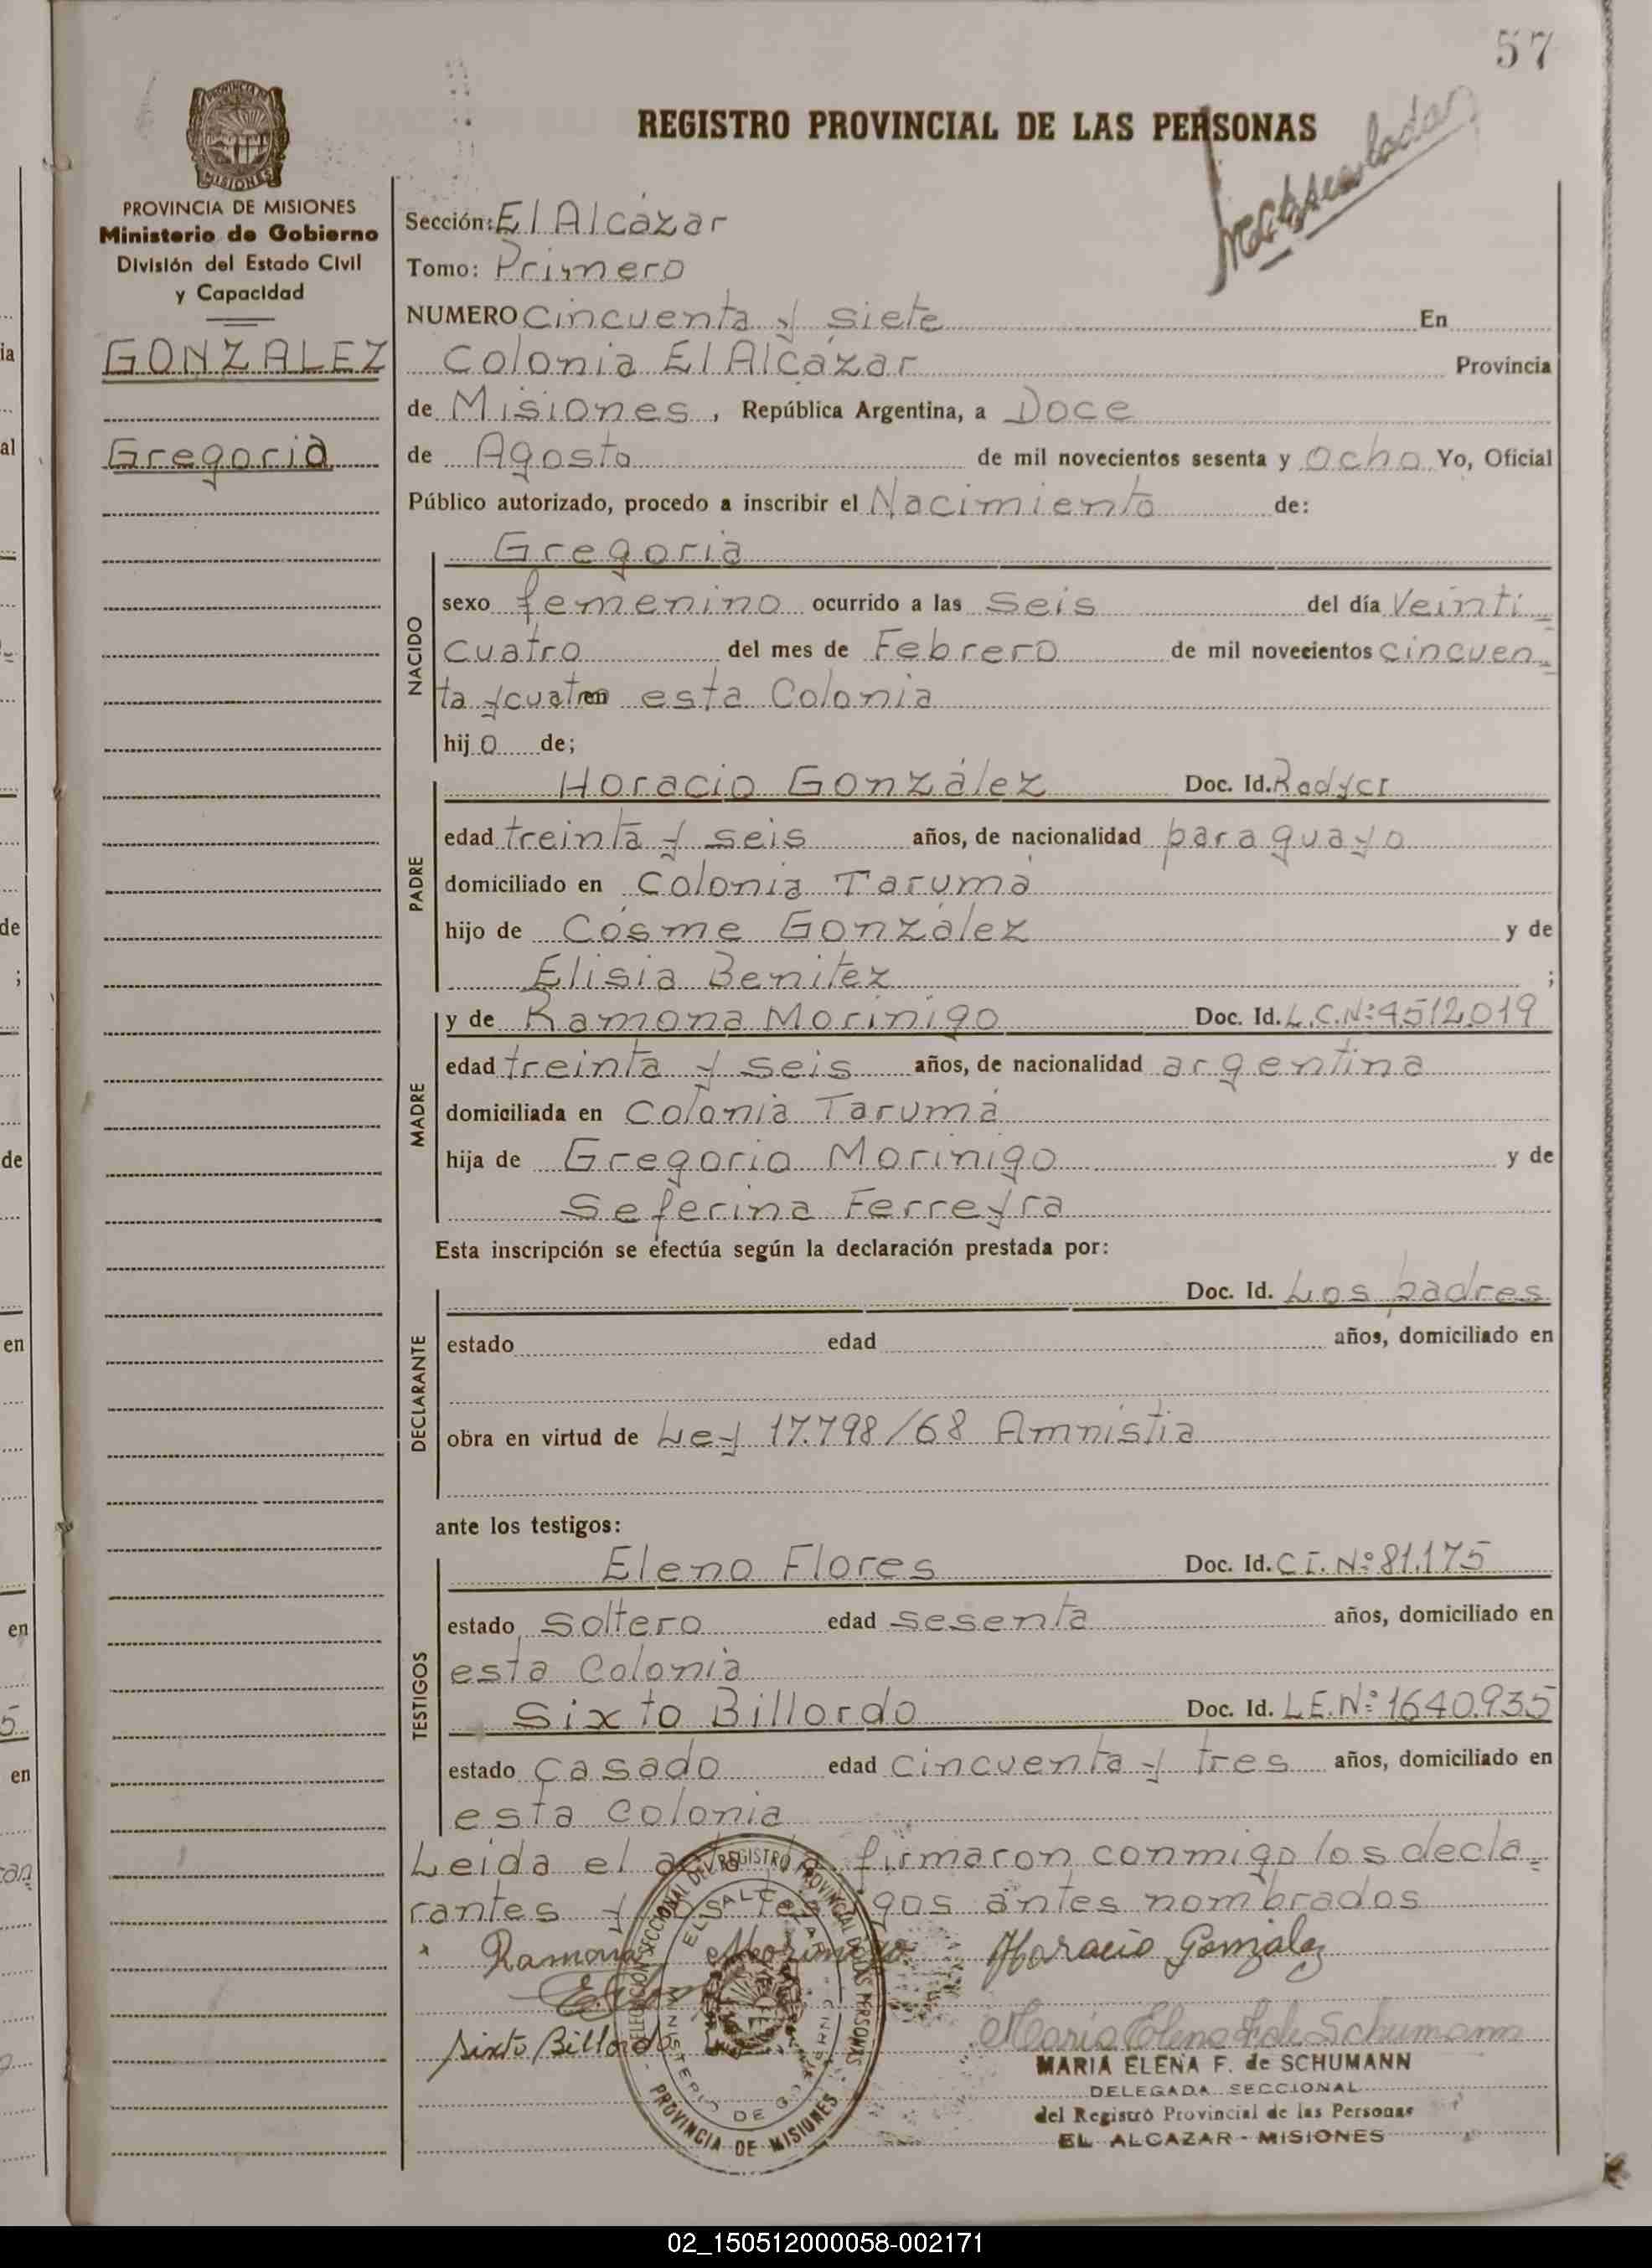 57
REGISTRO PROVINCIAL DE LAS PERSONAS
PROVINCIA DE MISIONES
Ministerio de Gobierno
División del Estado Civil
y Capacidad
GONZALEZ
Gregoria
Sección: El Alcázar
Tomo: Primero
NUMERO Cincuenta y siete En
Colonia El Alcázar Provincia
de Misiones, República Argentina, a Doce
de Agosto de mil novecientos sesenta y Ocho Yo, Oficial
Público autorizado, procedo a inscribir el Nacimiento de:
Gregoria
NACIDO
sexo femenino ocurrido a las Seis del día Veinti
cuatro del mes de Febrero de mil novecientos cincuen
ta y cuatro en esta Colonia
hijo de;
PADRE
Horacio González Doc. Id.
edad treinta y seis años, de nacionalidad paraguayo
domiciliado en Colonia Tarumá
hijo de Cosme González y de
Elisia Benitez ;
MADRE
y de Ramona Morinigo Doc. Id. L.C.Nº 4512.019
edad treinta y seis años, de nacionalidad argentina
domiciliada en Colonia Tarumá
hija de Gregorio Morinigo y de
Seferina Ferreyra
Esta inscripción se efectúa según la declaración prestada por:
DECLARANTE
Doc. Id. Los padres
estado edad años, domiciliado en
obra en virtud de Ley 17.798/68 Amnistia
ante los testigos:
TESTIGOS
Eleno Flores Doc. Id. C.I. Nº 81.175
estado soltero edad sesenta años, domiciliado en
esta Colonia
Sixto Billordo Doc. Id. L.E.Nº 1640.935
estado casado edad cincuenta y tres años, domiciliado en
esta colonia
Leida el acta firmaron conmigo los decla
rantes y los testigos antes nombrados
Ramona Morinigo Horacio González
Sixto Billordo Maria Elena F. de Schumann
MARIA ELENA F. de SCHUMANN
DELEGADA SECCIONAL
del Registro Provincial de las Personas
EL ALCAZAR - MISIONES
DELEGACION SECCIONAL DEL REGISTRO PROVINCIAL DE LAS PERSONAS
EL ALCAZAR
MINISTERIO DE
PROVINCIA DE MISIONES
02_150512000058-002171